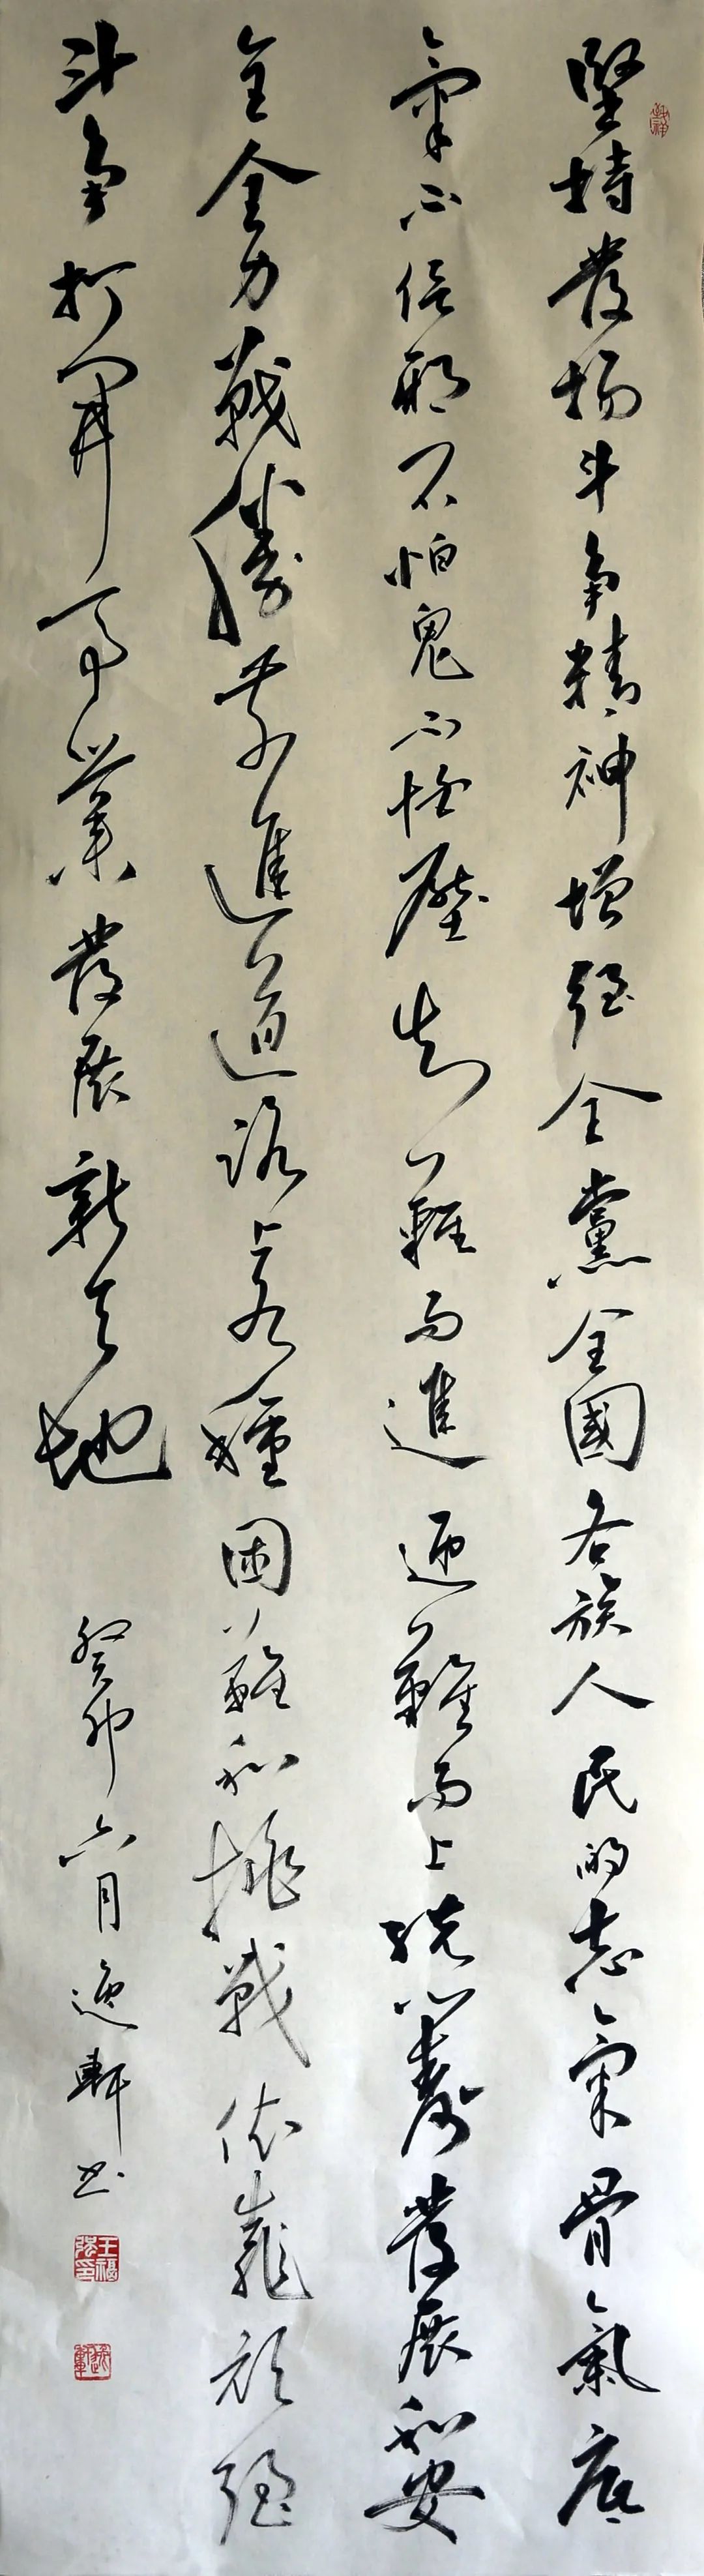 堅持發揚斗爭精神增强全黨全國各族人民的志氣骨氣底
氣不信邪不怕鬼不怕壓知難而進迎難而上統籌發展和安
全全力戰勝前進道路上各種困難和挑戰依靠頑强
斗爭打開事業發展新天地 癸卯六月逸軒书
王福强印
逸軒